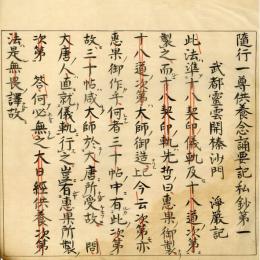 隨行一尊供養念誦要記私鈔第一
武都靈雲開榛沙門 淨嚴記
此法準十八契印儀軌及十八道次第
製之而十八契印軌先哲曰惠果御製
十八道次第大師御造已今云次第亦
惠果御作歟何者三十帖中有此次第
故三十帖咸大師於大唐所受故 問
大唐人直就儀軌行之豈有惠果所製
次第 答何必無之大日經供養次第
法是無畏譯故